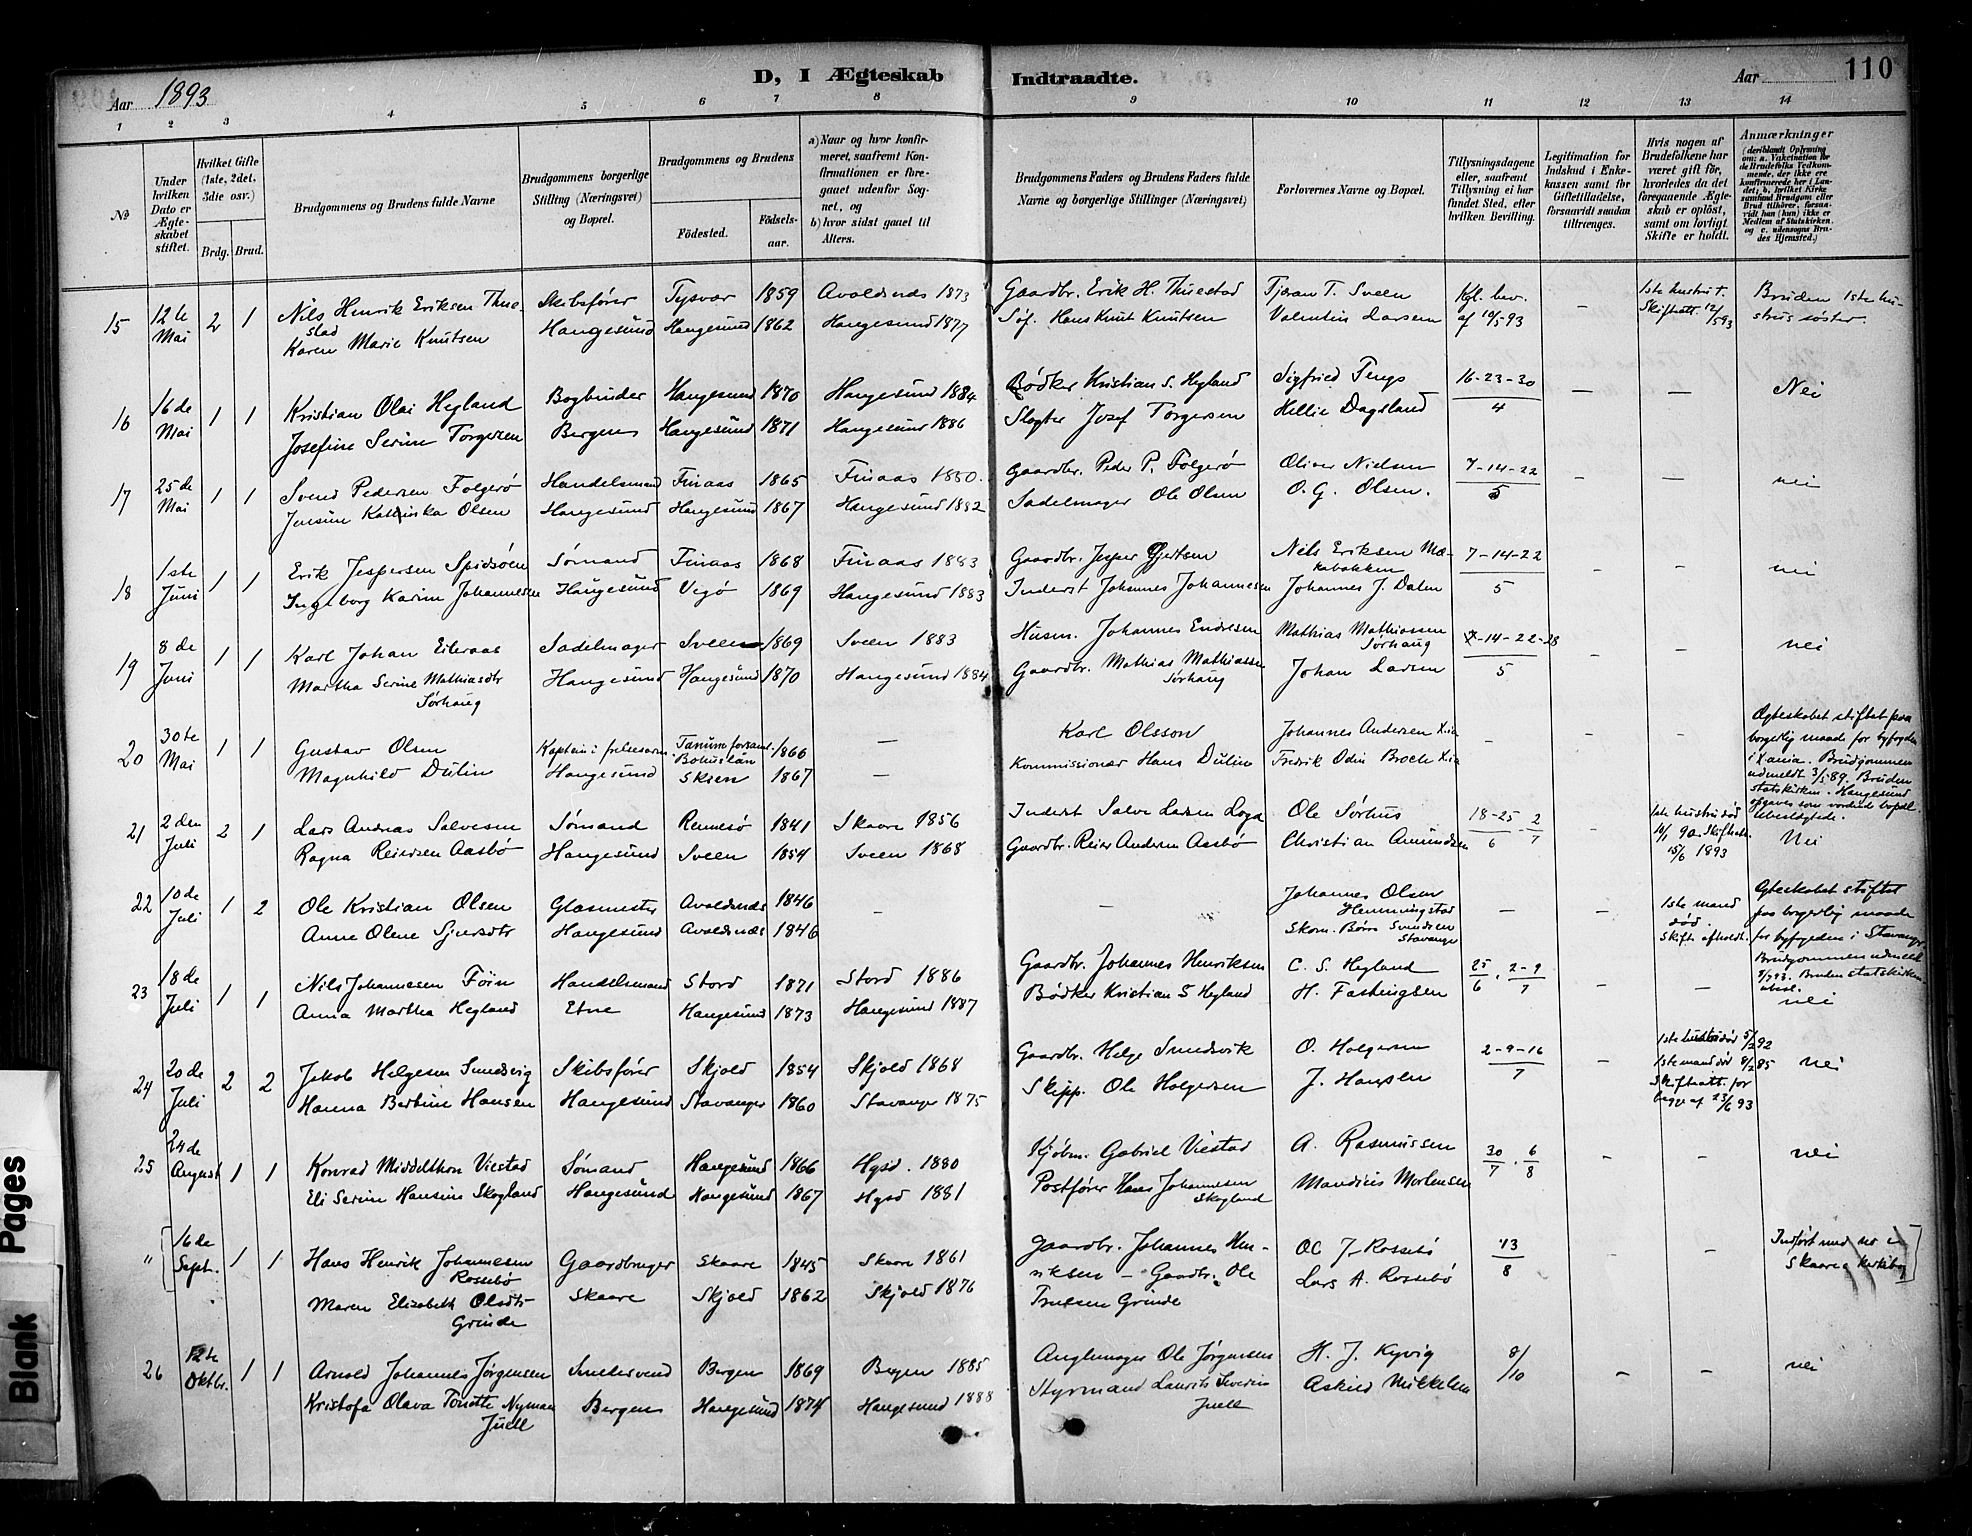 D, I Ægteskab Indtraadte.
110
Aar 1893
Aar
1 2 3 4 5 6 7 8 9 10 11 12 13 14
No
Under hvilken Dato er Ægteskabet stiftet.
Hvilket Gifte (1ste, 2det, 3die osv.)
Brdg. Brud.
Brudgommens og Brudens fulde Navne
Brudgommens borgerlige Stilling (Næringsvei) og Bopæl.
Brudgommens og Brudens
Fødested.
Fødselsaar.
a) Naar og hvor konfirmeret, saafremt Konfirmationen er foregaaet udenfor Sognet, og
b) hvor sidst gaaet til Alters.
Brudgommens Faders og Brudens Faders fulde Navne og borgerlige Stillinger (Næringsvei)
Forlovernes Navne og Bopæl.
Tillysningsdagene eller, saafremt Tillysning ei har fundet Sted, efter hvilken Bevilling.
Legitimation for Indskud i Enkekassen samt for Giftetilladelse, forsaavidt saadan tiltrænges.
Hvis nogen af Brudefolkene har været gift før, hvorledes da det foregaaende Ægteskab er opløst, samt om lovligt Skifte er holdt.
Anmærkninger (deriblandt Oplysning om: a. Vakcination for de Brudefolks Vedkommende, der ikke ere konfirmerede her i Landet, b. hvilket Kirkesamfund Brudgom eller Brud tilhører, forsaavidt han (hun) ikke er Medlem af Statskirken, og c. udensogns Brudes Hjemsted.)
15 12te Mai 2 1
Nils Henrik Eriksen Thuestad Skibsfører Tysvær 1859 Avaldsnæs 1873 Gaardbr. Erik H. Thuestad Tjeran T. Sveen Kgl. bev. – 1ste hustru †. Bruden 1ste hu-
Karen Marie Knutsen Haugesund Haugesund 1862 Haugesund 1877 Søf. Hans Knut Knutsen Valentin Larsen af 10/5 93 Skifteatt. 12/5 93 strus søster.
16 16de Mai 1 1
Kristian Olai Hegland Bogbinder Haugesund 1870 Haugesund 1884 Bødker Kristian S. Hegland Sigfried Tengs 16-23-30 – – Nei
Josefine Serine Torgersen Bergen Haugesund 1871 Haugesund 1886 Slagter Josef Torgersen Hellie Dagsland 4
17 25de Mai 1 1
Svend Pedersen Folgerø Handelsmand Finaas 1865 Finaas 1880. Gaardbr. Peder P. Folgerø Oliver Nielsen 7-14-22 – – nei
Jensine Kathinka Olsen Haugesund Haugesund 1867 Haugesund 1882 Sadelmager Ole Olsen O. G. Olsen. 5
18 1ste Juni 1 1
Erik Jespersen Spidsøen Sømand Finaas 1868 Finaas 1883 Gaardbr. Jesper Gjertsen Nils Eriksen 7-14-22 – – nei
Ingeborg Karine Johannesen Haugesund Vegø 1869 Haugesund 1883 Inderst Johannes Johannesen Johannes J. Dalen 5
19 8de Juni 1 1
Karl Johan Eileraas Sadelmager Sveen 1869 Sveen 1883 Husm. Johannes Endresen Mathias Mathiassen Sørhaug 7-14-22-28 – – nei
Martha Serine Mathiasdtr Sørhaug Haugesund Haugesund 1870 Haugesund 1884 Gaardbr. Mathias Mathiassen Sørhaug Johan Larsen 5
20 30te Mai 1 1
Gustav Olsen Kaptein i frelsesarm. Tanum forsaml. Bohuslän 1866 – Karl Olsson Johannes Andersen Xia – –
Magnhild Dulin Haugesund Skien 1867 – Kommissionær Hans Dulin Fredrik Odin Broch Xia
Ægteskabet stiftet paa borgerlig maade for byfogden i Xania. Brudgommen udmeldt 3/5 89. Bruden statskirken. Haugesund opgaves som vordende bopæl.
21 2den Juli 2 1
Lars Andreas Salvesen Sømand Rennesø 1841 Skaare 1856 Inderst Salve Larsen Ole Sørhus 18-25/6 - 2/7 – 1ste hustru død
Ragna Reiersen Aasbø Haugesund Sveen 1854 Sveen 1868 Gaardbr. Reier Andersen Aasbø Christian Amundsen 15/6 1893 Nei
22 10de Juli 1 2
Ole Kristian Olsen Glasmester Avaldsnæs 1846 – – Johannes Olsen Hemmingstad – – 1ste mand død.
Anne Olene Sjursdtr Haugesund Avaldsnæs 1846 Skom. Børre Svendsen Stavanger Skifte afholdt.
Ægteskabet stiftet paa borgerlig maade for byfogden i Stavanger. Brudgommen udmeldt 93. Bruden statskirken
23 18de Juli 1 1
Nils Johannesen Føin Handelsmand Stord 1871 Stord 1886 Gaardbr. Johannes Henriksen C. S. Hegland 25/6 . 2-9/7 – – nei
Anna Martha Hegland Etne Haugesund 1873 Haugesund 1887 Bødker Kristian S Hegland H. Fastingsen
24 20de Juli 2 2
Jakob Helgesen Sundsvig Skibsfører Skjold 1854 Skjold 1868 Gaardbr. Helge Sundsvik O. Holgersen 2-9-16 – 1ste hustru død 5/2 92 nei
Hanna Bertine Hansen Haugesund Stavanger 1860 Stavanger 1875 Skipp. Ole Holgersen J. Hansen 7 1ste mand død 4/2 85
Skifteatt. for begge af 23/6 93
25 24de August 1 1
Konrad Middelthon Viestad Sømand Haugesund 1866 Hgsd. 1880 Kjøbm. Gabriel Viestad A. Rasmussen 30/7 . 6/8 – – nei
Eli Serine Hansine Skogland Haugesund Haugesund 1867 Hgsd 1881 Postfører Hans Johannesen Skogland Mauditis Mortensen
" 16de Sept. 1 1
Hans Henrik Johannesen Rossebø Gaardbruger Skaare 1845 Skaare 1861 Gaardbr. Johannes Hen- Ole J. Rossebø 13/8 – – Indført med no i
Maren Elizabeth Olsdtr Grinde Skaare Skjold 1862 Skjold 1876 riksen – Gaardbr. Ole Lars A. Rossebø Skaare kirkebog
Trulsen Grinde
26 12te Oktbr. 1 1
Arnold Johannes Jørgensen Smedesvend Bergen 1869 Bergen 1885 Anglemager Ole Jørgensen H. J. Kyvig 8/10 – – nei
Kristofa Olava Tonette Nyman Juell Bergen Haugesund 1874 Haugesund 1888 Styrmand Laurits Severin Juell Askild Mikkelsen
Blank Pages